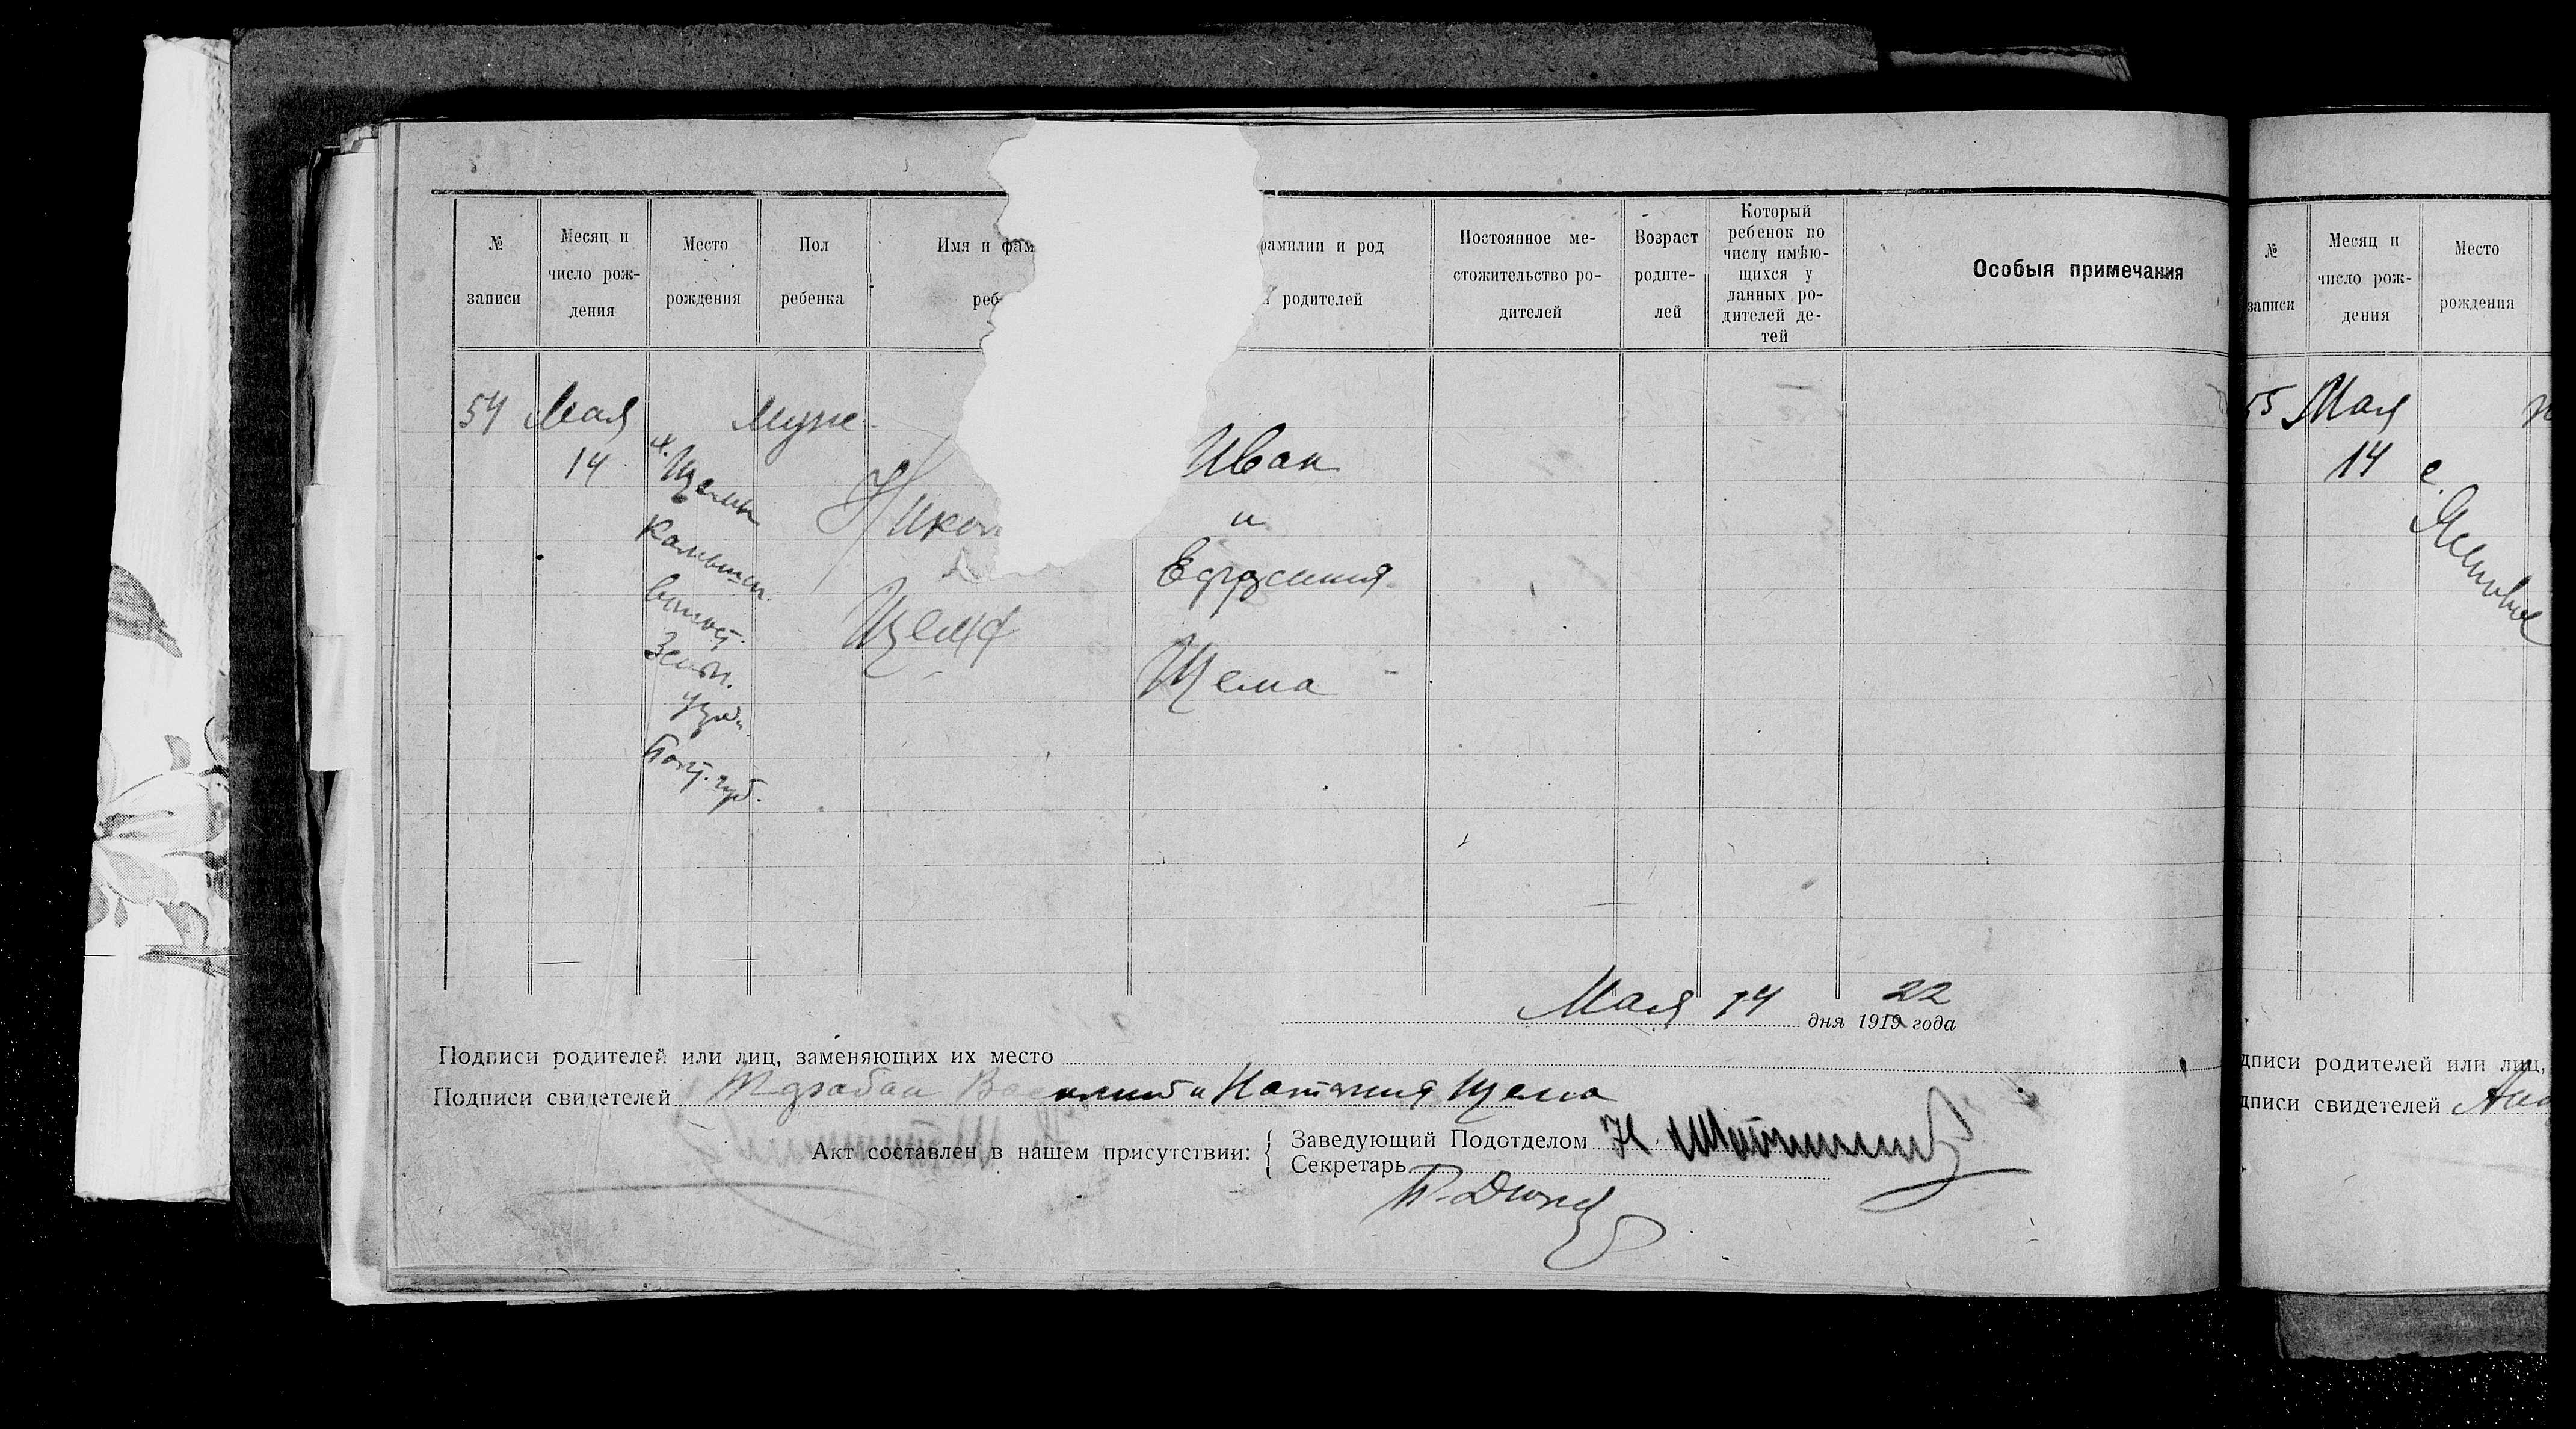 № записи
Месяц и число рождения
Место рождения
Пол ребенка
Имя и фам
реб
фамилии и род
родителей
Постоянное местожительство родителей
Возраст родителей
Который ребенок по числу имѣющихся у данных родителей детей
Особыя примечания
54 Мая Муж.
14
х. Щемы
Камышан.
волост.
Зеньк.
уезд.
Полт. губ.
Никол
Щема
Иван
и
Ефросиния
Щема
Мая 14 дня 1919 22 года
Подписи родителей или лиц, заменяющих их место
Подписи свидетелей Наталия Щема
Акт составлен в нашем присутствии:
Заведующий Подотделом Н
Секретарь
№ записи
Месяц и число рождения
Место рождения
55 Мая
14 с.
дписи родителей или лиц,
дписи свидетелей